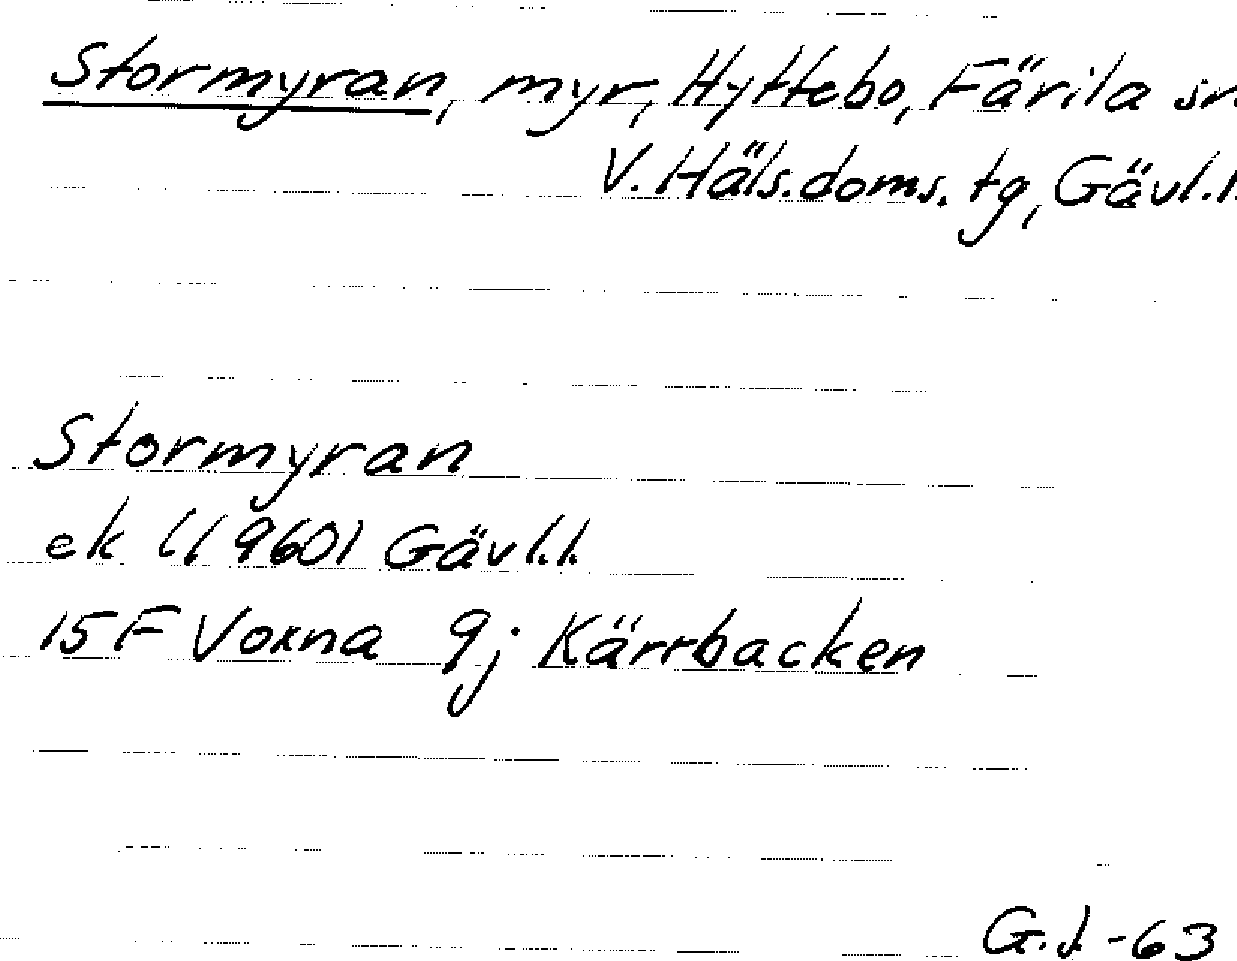 Stormyran, myr, Hyttebo, Färila sn.
V. Häls.doms. tg, Gävl.l.
Stormyran
ek 119601 Gävl.l.
15F Voxna 9j Kärrbacken
G.J-63